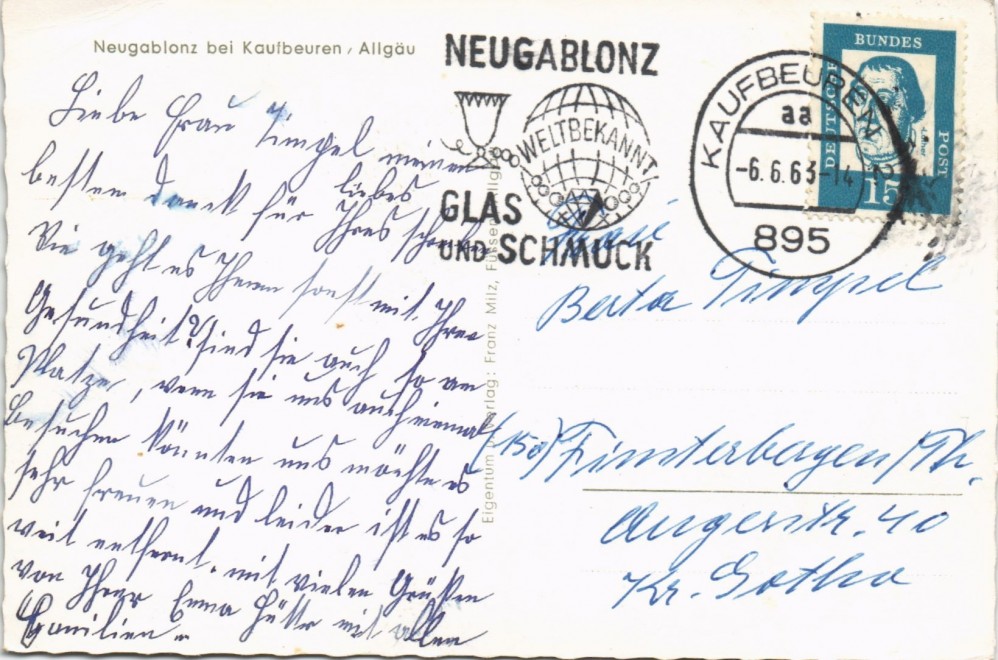 Neugablonz bei Kaufbeuren / Allgäu
Liebe Frau Timpel meinen
besten Dank für Ihres liebes schreiben
Wie geht es Ihnen sonst mit Ihrer
Gesundheit? Sind sie auch so am
Platze, wenn sie uns auch einmal
Besuchen könnten uns möchte es
sehr freuen und leider ist es so
weit entfernt. mit vielen Grüßen
von Ihrer Emma Hütte mit allen
Familien
NEUGABLONZ
WELTBEKANNT
GLAS
UND SCHMUCK
KAUFBEUREN 2
aa
-6.6.63-14
895
DEUTSCHE
BUNDES
POST
15
Eigentum u. Verlag: Franz Milz, Füssen, Allgäu
Berta Timpel
(15a) Finsterbergen/Th.
Angerstr. 40
Kr. Gotha